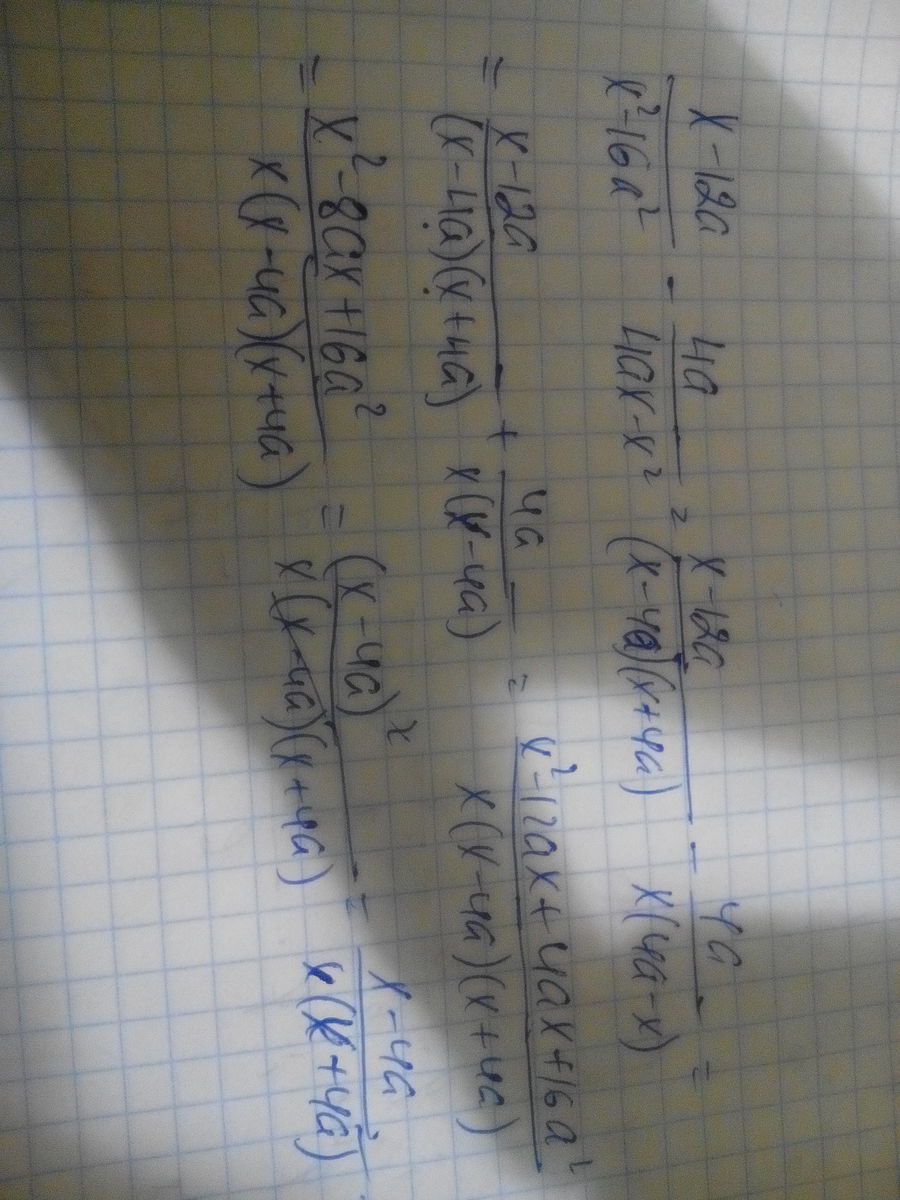 (x-12a)/(x²-16a²) - 4a/(4ax-x²) = (x-12a)/((x-4a)(x+4a)) - 4a/(x(4a-x)) =
= (x-12a)/((x-4a)(x+4a)) + 4a/(x(x-4a)) = (x²-12ax+4ax+16a²)/(x(x-4a)(x+4a))
= (x²-8ax+16a²)/(x(x-4a)(x+4a)) = (x-4a)²/(x(x-4a)(x+4a)) = (x-4a)/(x(x+4a))